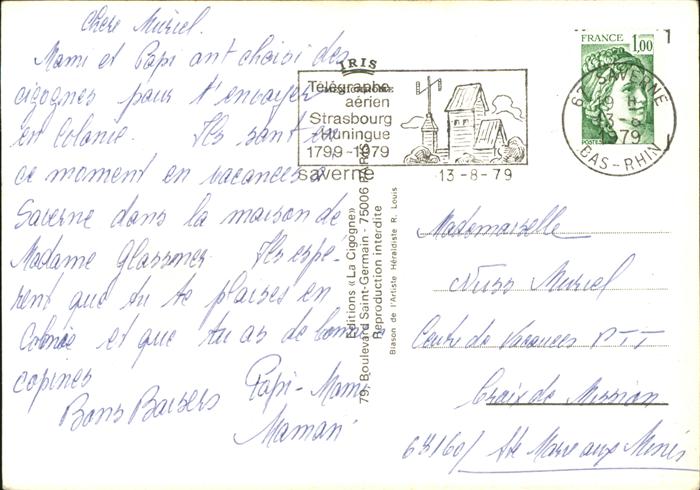 Chère Muriel.
Mami et Papi ont choisi des
cigognes pour t'envoyer
en Colonie. Ils sont en
ce moment en vacances à
Saverne dans la maison de
Madame Glassmer. Ils espé-
rent que tu te plaises en
Colonie et que tu as de bonnes
copines
Bons Baisers Papi-Mami
Maman
IRIS
Télégraphe
aérien
Strasbourg
Huningue
1799-1979
saverne
13-8-79
FRANCE
1,00
POSTES
67 SAVERNE
19 H
13-8
1979
BAS-RHIN
Editions «La Cigogne»
79, Boulevard Saint-Germain - 75006 PARIS
Reproduction interdite
Biason de l'Artiste Héraldiste R. Louis
Mademoiselle
Nuss Muriel
Centre de Vacances PTT
Croix de Mission
68160/ Ste Marie aux Mines